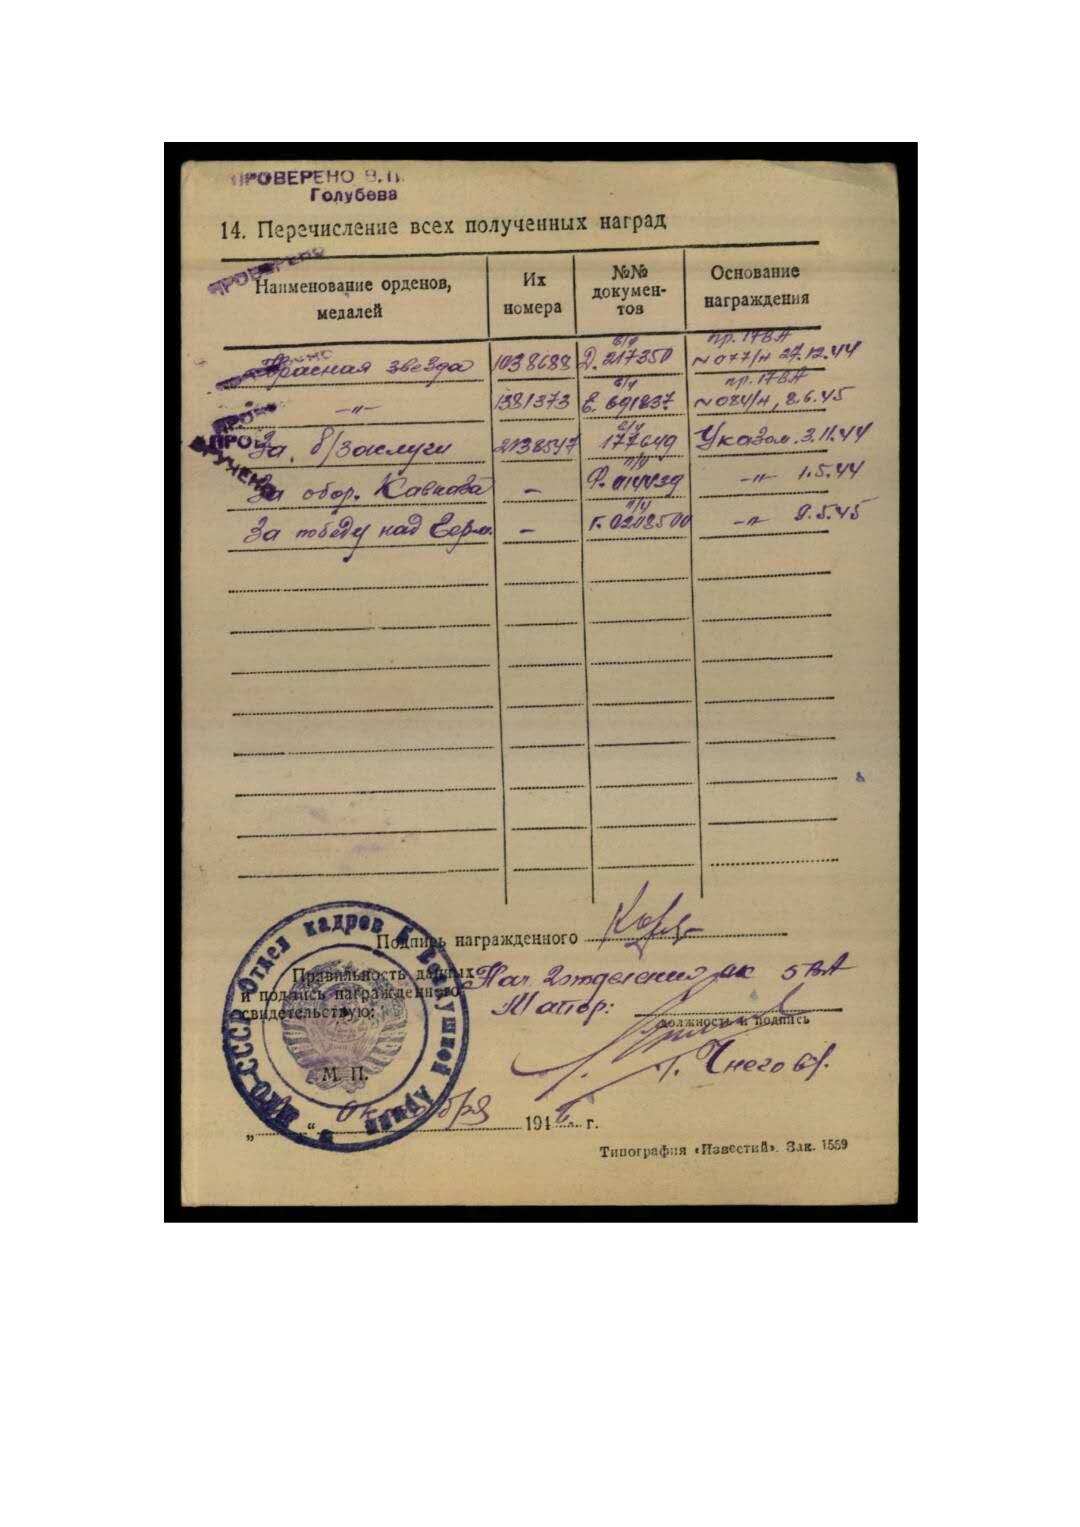 ПРОВЕРЕНО В.П.
Голубева
14. Перечисление всех полученных наград
ПРОВЕРЕНО
Наименование орденов, медалей
Их номера
№№ документов
Основание награждения
Красная звезда 1038688 б/у Д. 217350 пр. 17ВА №077/н 27.12.44
—"— 1381373 б/у Е. 691837 пр. 17ВА №084/н, 8.6.45
За б/заслуги 2138547 177649 Указом 3.11.44
За обор. Кавказа – п/у Ф. —"— 1.5.44
За победу над Герм. – п/у Г. 0208500 —"— 9.5.45
ВРУЧЕНО
Подпись награжденного
Правильность данных
и подпись награжденного
свидетельствую:
Нач. 2 отделения ок 5 ВА
Майор:
должность и подпись
М. П.
Отдел кадров 5 Воздушной Армии
СССР
„ “ Октября 194 г.
Типография «Известий». Зак. 1559